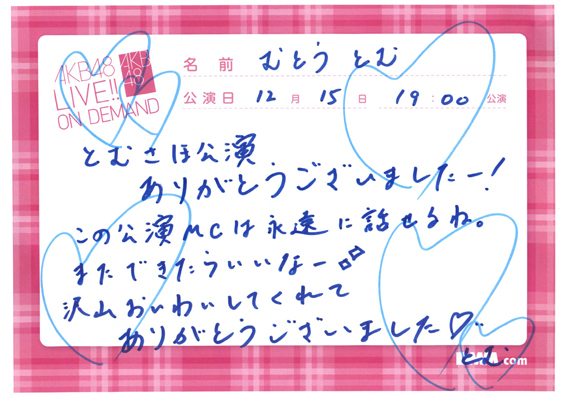 AKB48
LIVE!!
ON DEMAND
AKB
48
名前 むとう とむ
公演日 12月 15日 19:00 公演
とむさほ公演
ありがとうございましたー!
この公演MCは永遠に話せるね。
またできたらいいなー
沢山おいわいしてくれて
ありがとうございました♡
とむ
.com